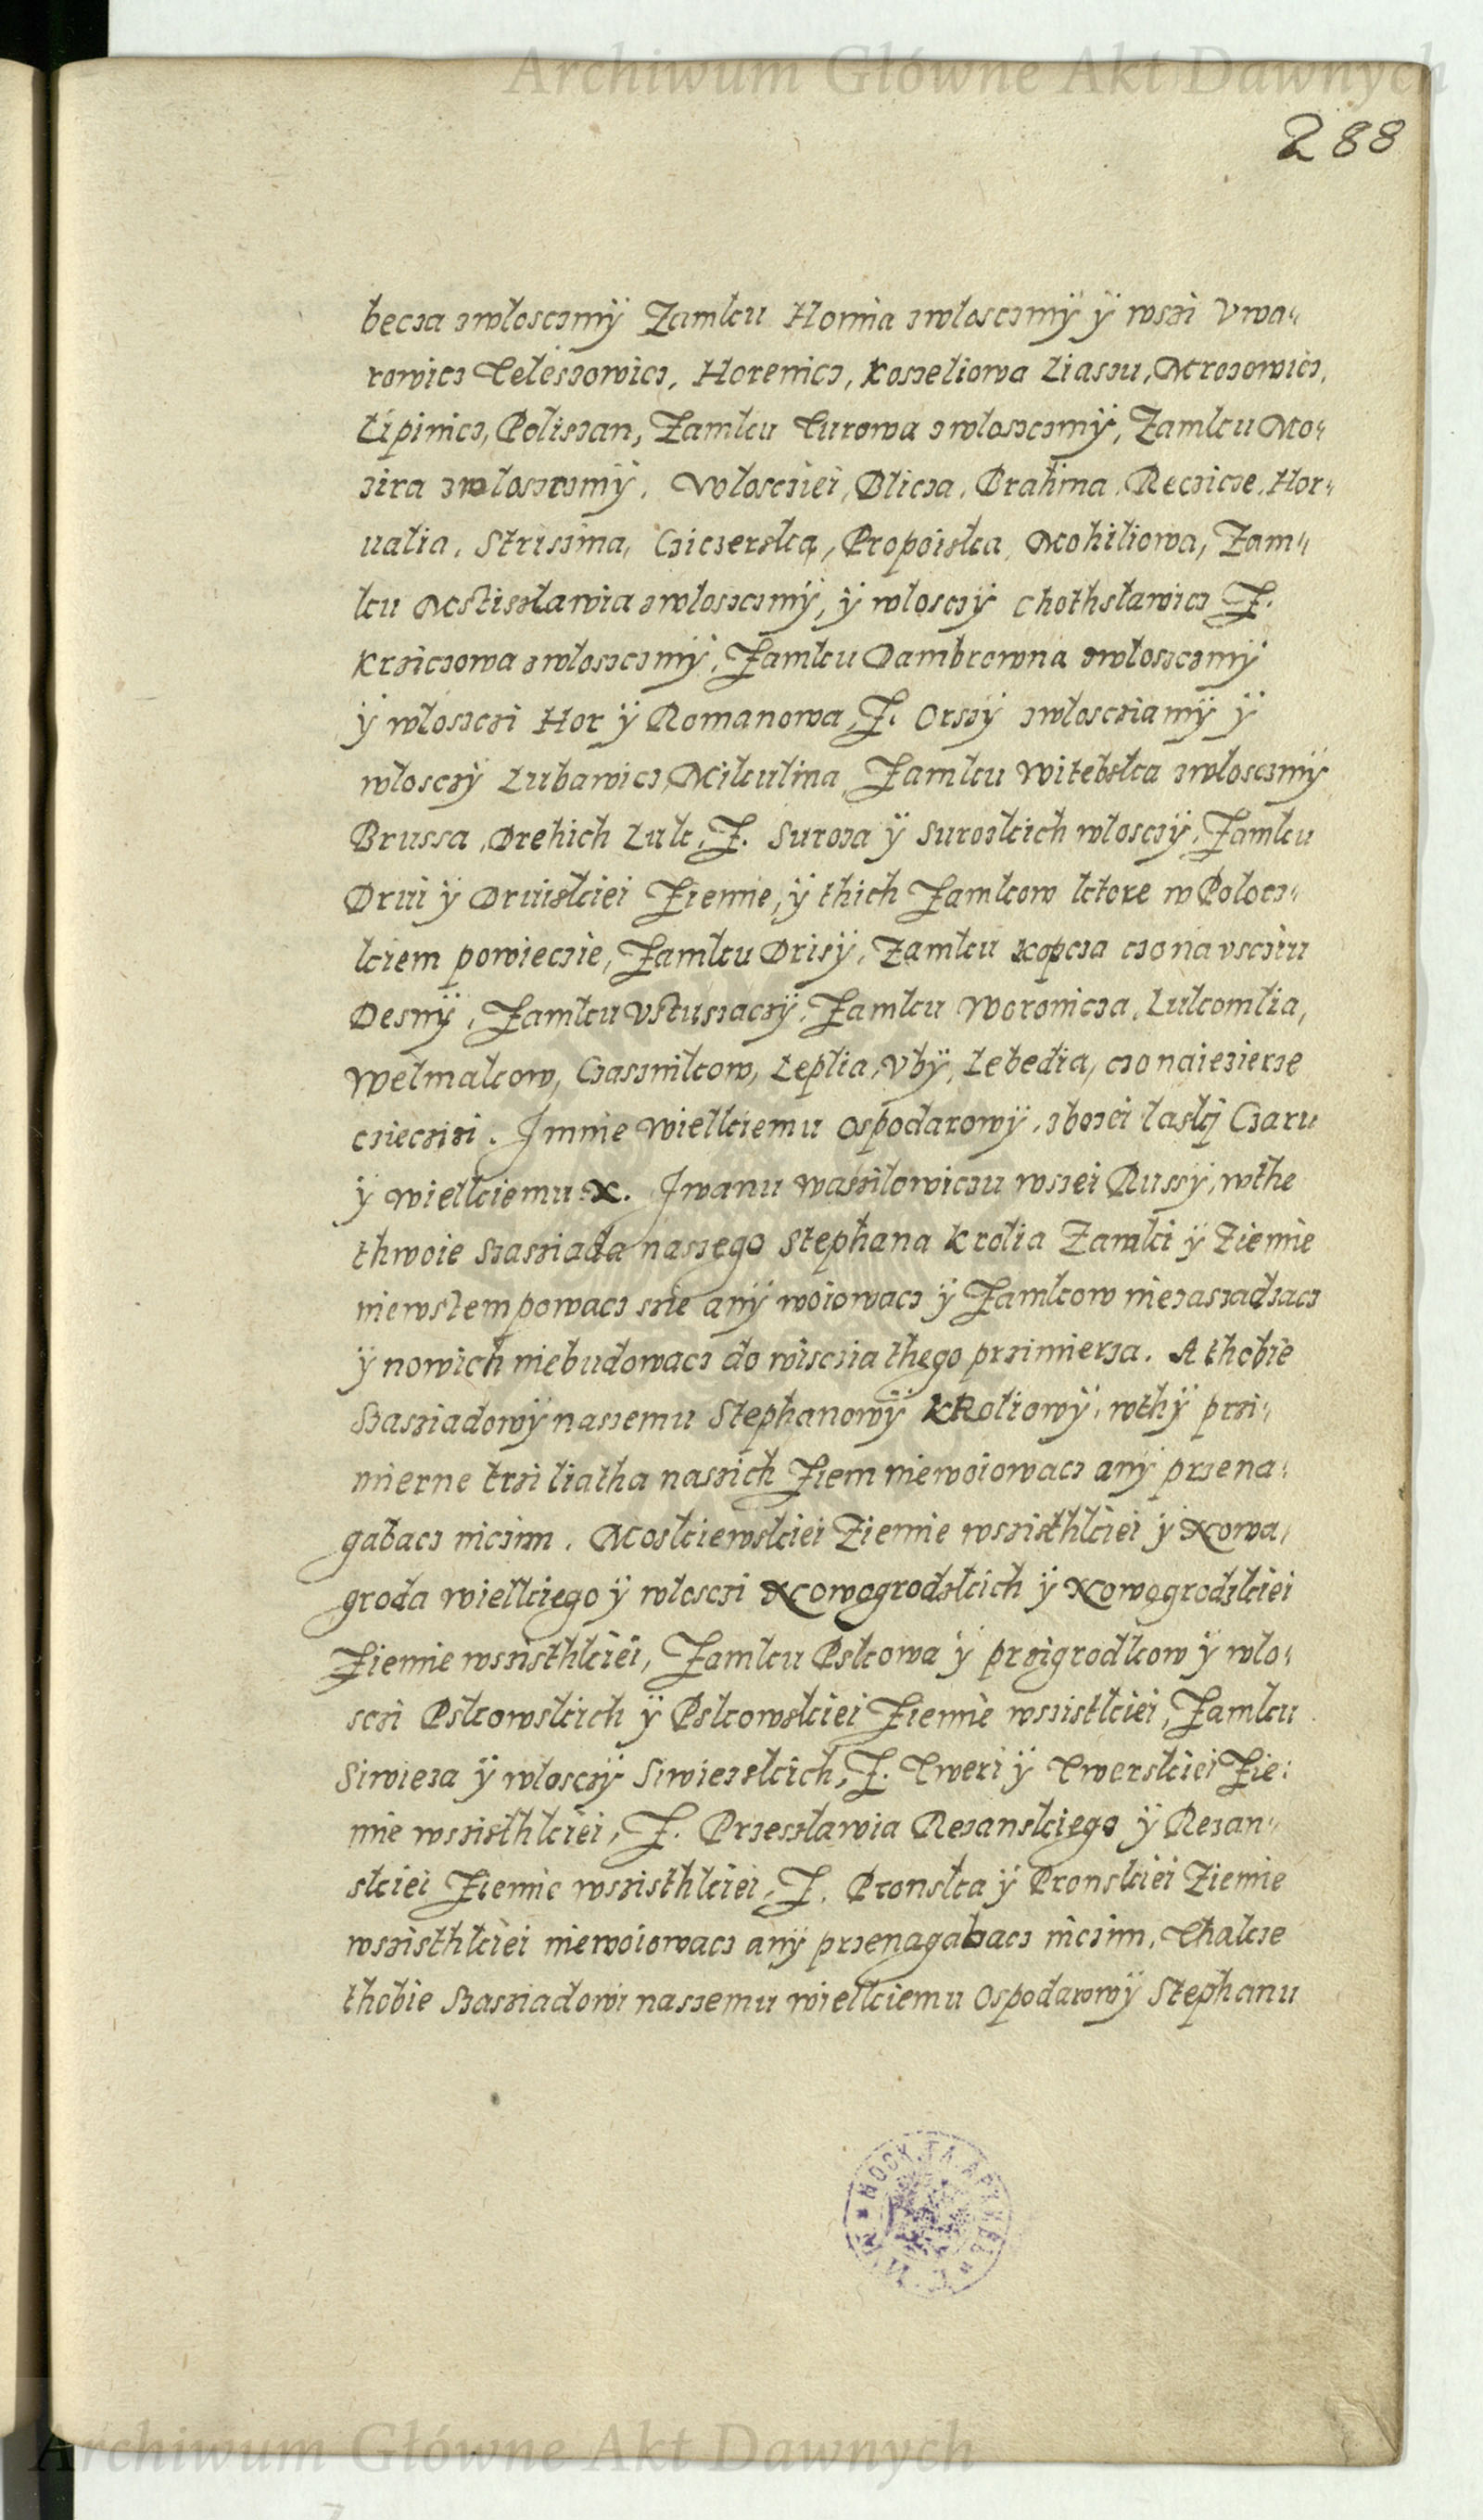 Archiwum Główne Akt Dawnych
288
becza zwłosczmÿ Zamku Homia zwłosczmÿ ÿ wszi Vwa„
rowicz Teleszowicz, Horenicz, Koszeliowa Liaszu, Mrozowicz,
Lipinicz, Poliszan, Zamku Turowa zwloszczmÿ, Zamku Mo„
zira zwloszczmÿ, Wołoscziei, Blicza, Brahina, Reczicze, Hor„
ualia, Striszina, Cziczerska, Propoiska, Mohiliowa, Zam„
ku Mstiszławia zwłoszczmÿ, ÿ wlosczÿ Chothsławicz Z.
Krziczowa zwłoszczmÿ, Zamku Dambrowna zwłoszczmÿ
ÿ włoszczi Hor ÿ Romanowa, Z. Orszÿ zwłoscziamÿ ÿ
włosczÿ Lubawicz, Mikulina, Zamku Witebska zwłosczmÿ
Brussa, Drehich Luk, Z. Suroza ÿ Surozkich włosczÿ, Zamku
Drui ÿ Druiskiei Ziemie, ÿ thich Zamkow ktore w Polocz„
kiem powieczie, Zamku Drisÿ, Zamku Kopcza czo na vscziu
Desnÿ, Zamku Vstuszaczÿ, Zamku Woronicza, Lukomlia,
Welmakow, Czasznikow, Leplia, Vbÿ, Lebedia, czo naiezierze
czieczizi. I mnie Wielkiemu Ospodarowÿ, zbozei łaskj Czaru
ÿ Wielkiemu X. Iwanu Waszilowiczu wszei Russÿ, wthe
thwoie Szasziada naszego Stephana Krolia Zamki ÿ Ziemie
niewstempowacz szie anÿ woiowacz ÿ Zamkow niezaszadzacz
ÿ nowich niebudowacz do wisczia thego przimierza. A thobie
Szasziadowÿ naszemu Stephanowÿ KRoliowÿ, wthÿ przi„
mierne trzi liatha naszich Ziem niewoiowacz anÿ przena„
gabacz niczim. Moskiewskiei Ziemie wszisthkiei ÿ Nowa„
groda wielkiego ÿ włosczi Nowogrodskich ÿ Nowogrodskiei
Ziemie wszisthkiei, Zamku Pskowa ÿ przigrodkow ÿ wlo„
sczi Pskowskich ÿ Pskowskiei Ziemie wszistkiei, Zamku
Siwieza ÿ wlosczÿ Siwiezskich, Z. Tweri ÿ Twerskiei Zie„
mie wszisthkiei, Z. Przeszławia Rezanskiego ÿ Rezan„
skiei Ziemie wszisthkiei, Z. Pronska ÿ Pronskiei Ziemie
wszisthkiei niewoiowacz anÿ przenagabacz niczim, Thakze
thobie Szasziadowi naszemu wielkiemu Ospodarowÿ Stephanu
Archiwum Główne Akt Dawnych